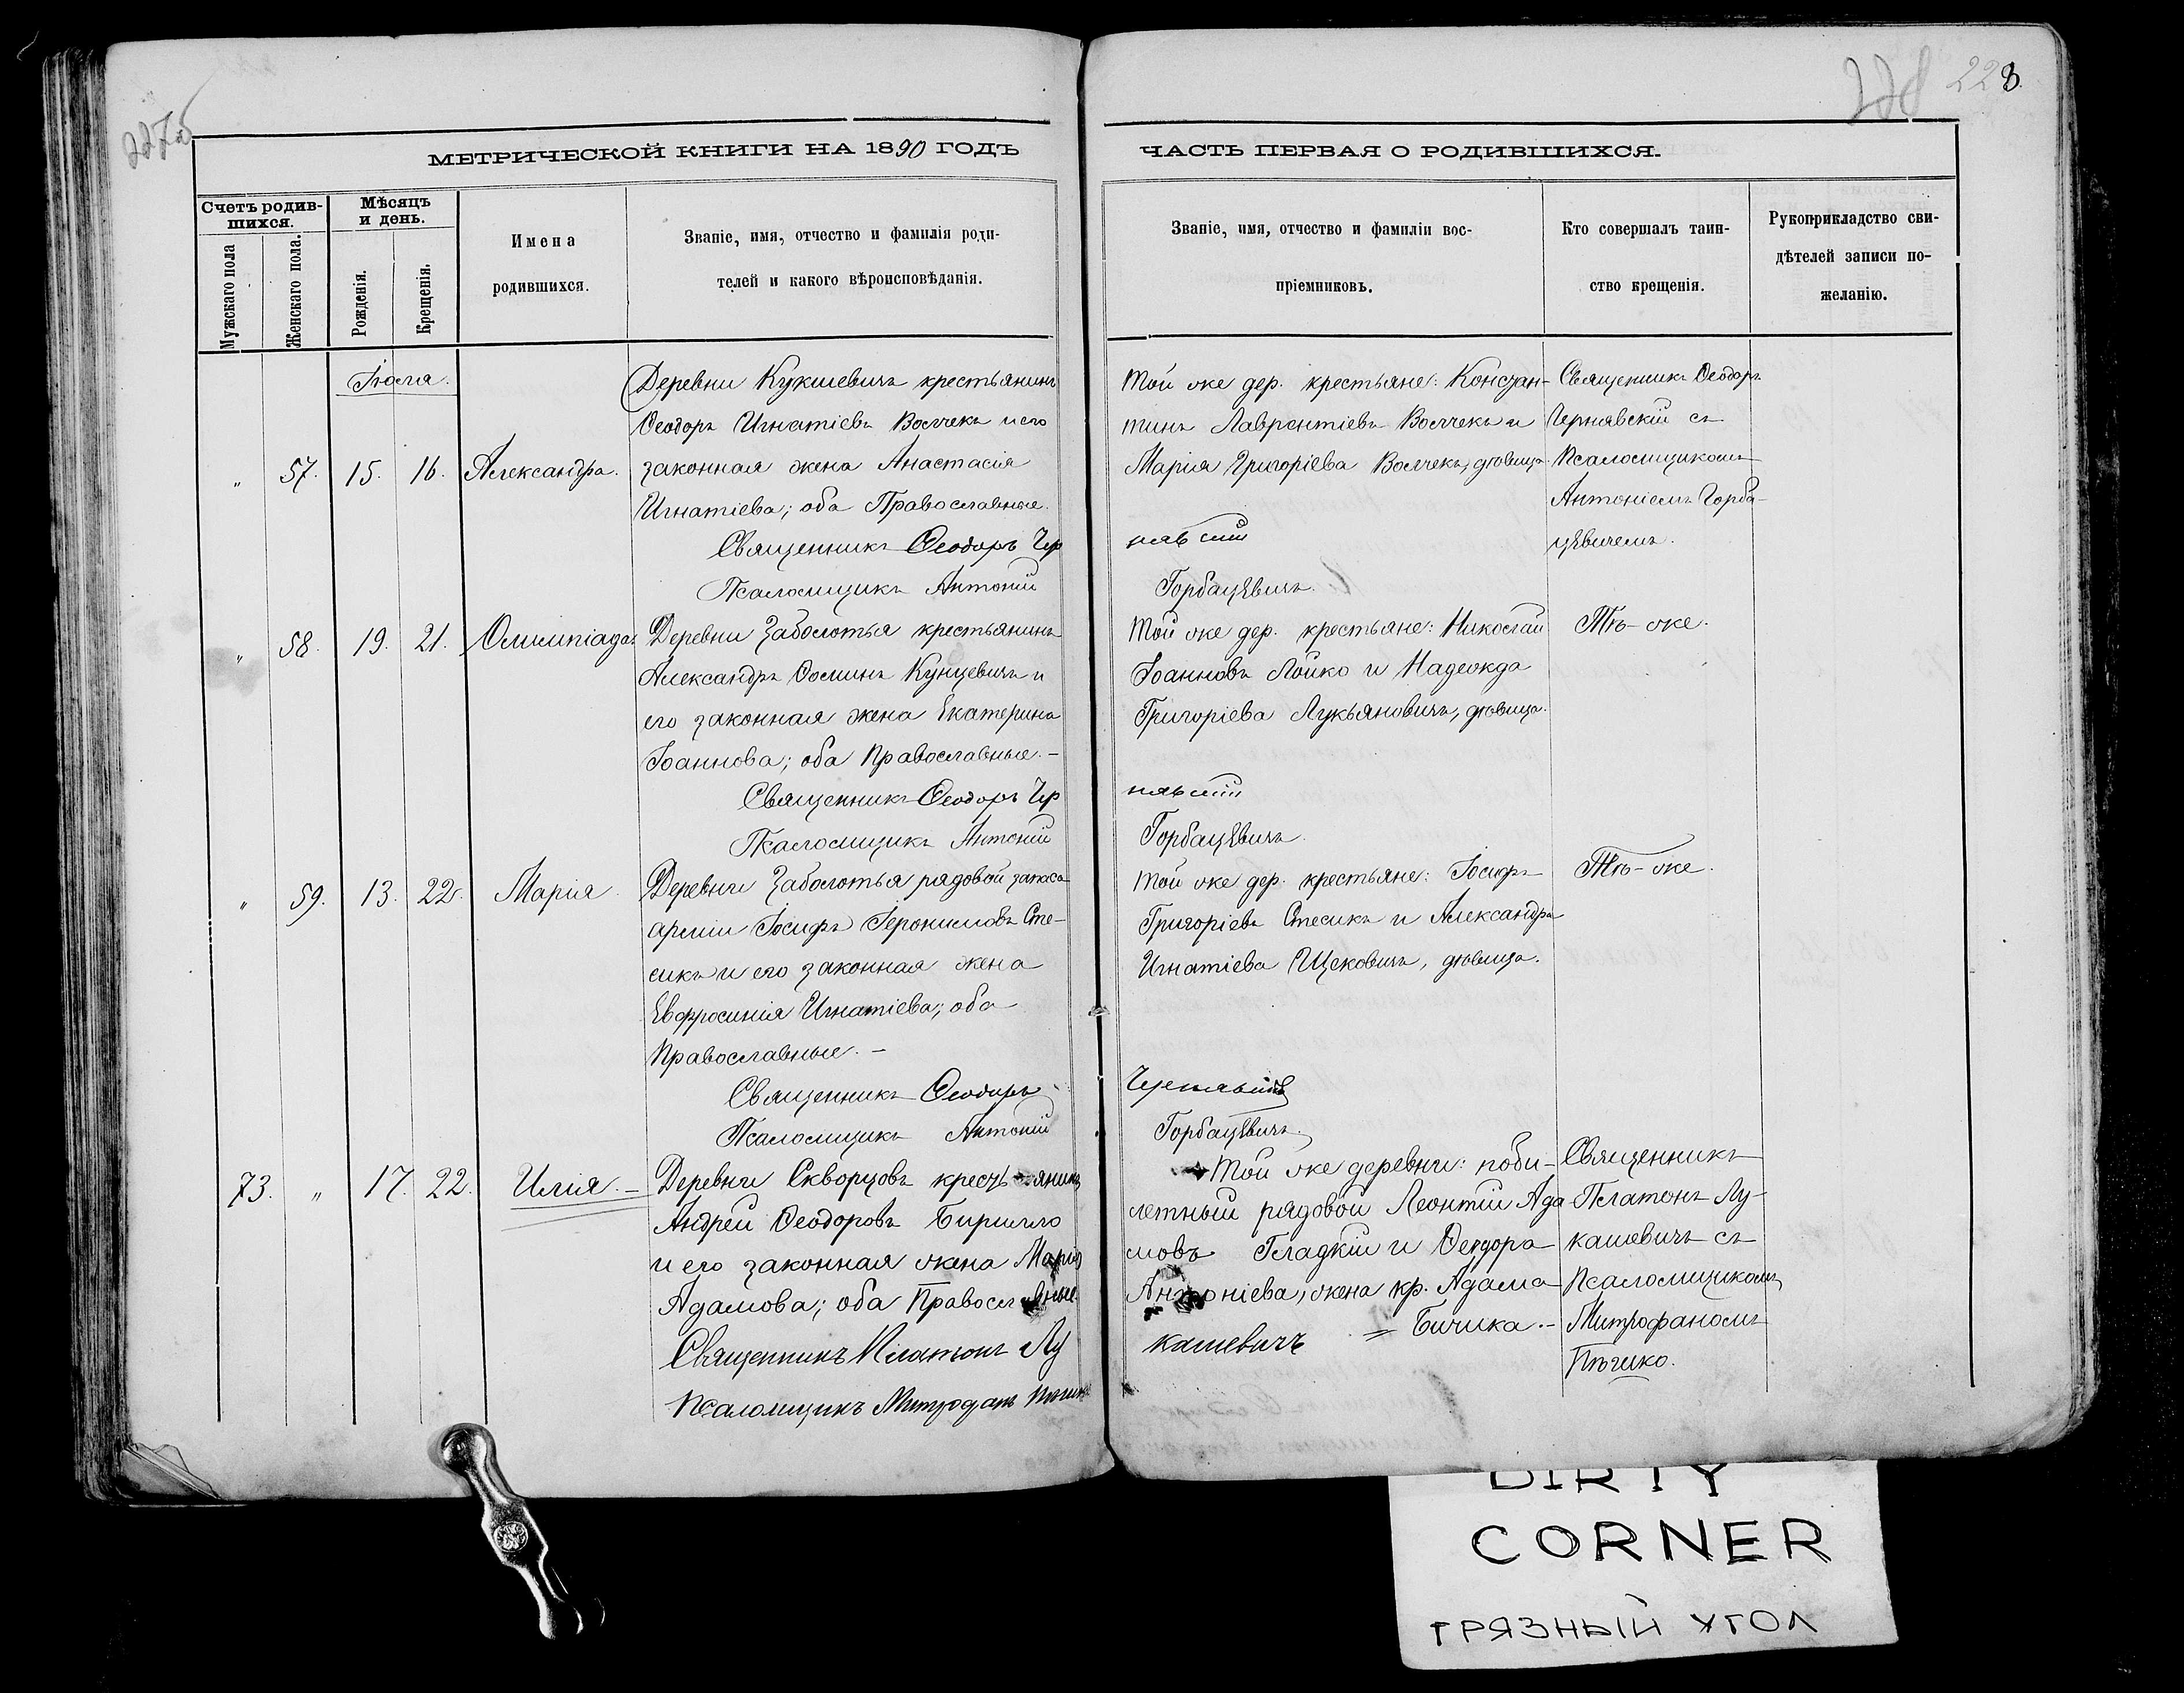 227об
228
228.
МЕТРИЧЕСКОЙ КНИГИ НА 1890 ГОДЪ
ЧАСТЬ ПЕРВАЯ О РОДИВШИХСЯ.
Счетъ родив-
шихся.
Мужскаго пола
Женскаго пола.
Мѣсяцъ
и день.
Рожденія.
Крещенія.
Имена
родившихся.
Званіе, имя, отчество и фамилія роди-
телей и какого вѣроисповѣданія.
Званіе, имя, отчество и фамиліи вос-
пріемниковъ.
Кто совершалъ таин-
ство крещенія.
Рукоприкладство сви-
дѣтелей записи по-
желанію.
Іюля.
„ 57. 15. 16. Александра.
Деревни Кукшевичъ крестьянинъ
Ѳеодоръ Игнатіевъ Волчекъ и его
законная жена Анастасія
Игнатіева; оба Православные.
Священникъ Ѳеодоръ Чер
Псаломщикъ Антоній
Той же дер. крестьяне: Констан-
тинъ Лаврентіевъ Волчекъ и
Марія Григоріева Волчекъ, дѣвица
нявскій
Горбацѣвичъ.
Священникъ Ѳеодоръ
Чернявскій съ
Псаломщикомъ
Антоніемъ Горба-
цѣвичемъ.
„ 58. 19. 21. Олимпіада.
Деревни Заболотья крестьянинъ
Александръ Ѳоминъ Кунцевичъ и
его законная жена Екатерина
Іоаннова; оба Православные. –
Священникъ Ѳеодоръ Чер
Псаломщикъ Антоній
Той же дер. крестьяне: Николай
Іоанновъ Лойко и Надежда
Григоріева Лукьяновичъ, дѣвица.
нявскій
Горбацѣвичъ.
Тѣ-же.
„ 59. 13. 22. Марія.
Деревни Заболотья рядовой запаса
арміи Іосифъ Іеронимовъ Сте-
сикъ и его законная жена
Евфросинія Игнатіева; оба
Православные. –
Священникъ Ѳеодоръ
Псаломщикъ Антоній
Той же дер. крестьяне: Іосифъ
Григоріевъ Стесикъ и Александра
Игнатіева Щековичъ, дѣвица.
Чернявскій
Горбацѣвичъ.
Тѣ-же.
73. „ 17. 22. Илія. –
Деревни Скворцовъ крестьянинъ
Андрей Ѳеодоровъ Бирилло
и его законная жена Марія
Адамова; оба Православные.
Священникъ Платонъ Лу
Псаломщикъ Митрофанъ
Той же деревни: поби-
летный рядовой Леонтій Ада
мовъ Гладкій и Ѳеодора
Антоніева, жена кр. Адама
= Бичика. –
кашевичъ
Священникъ
Платонъ Лу-
кашевичъ съ
Псаломщикомъ
Митрофаномъ
DIRTY
CORNER
ГРЯЗНЫЙ УГОЛ